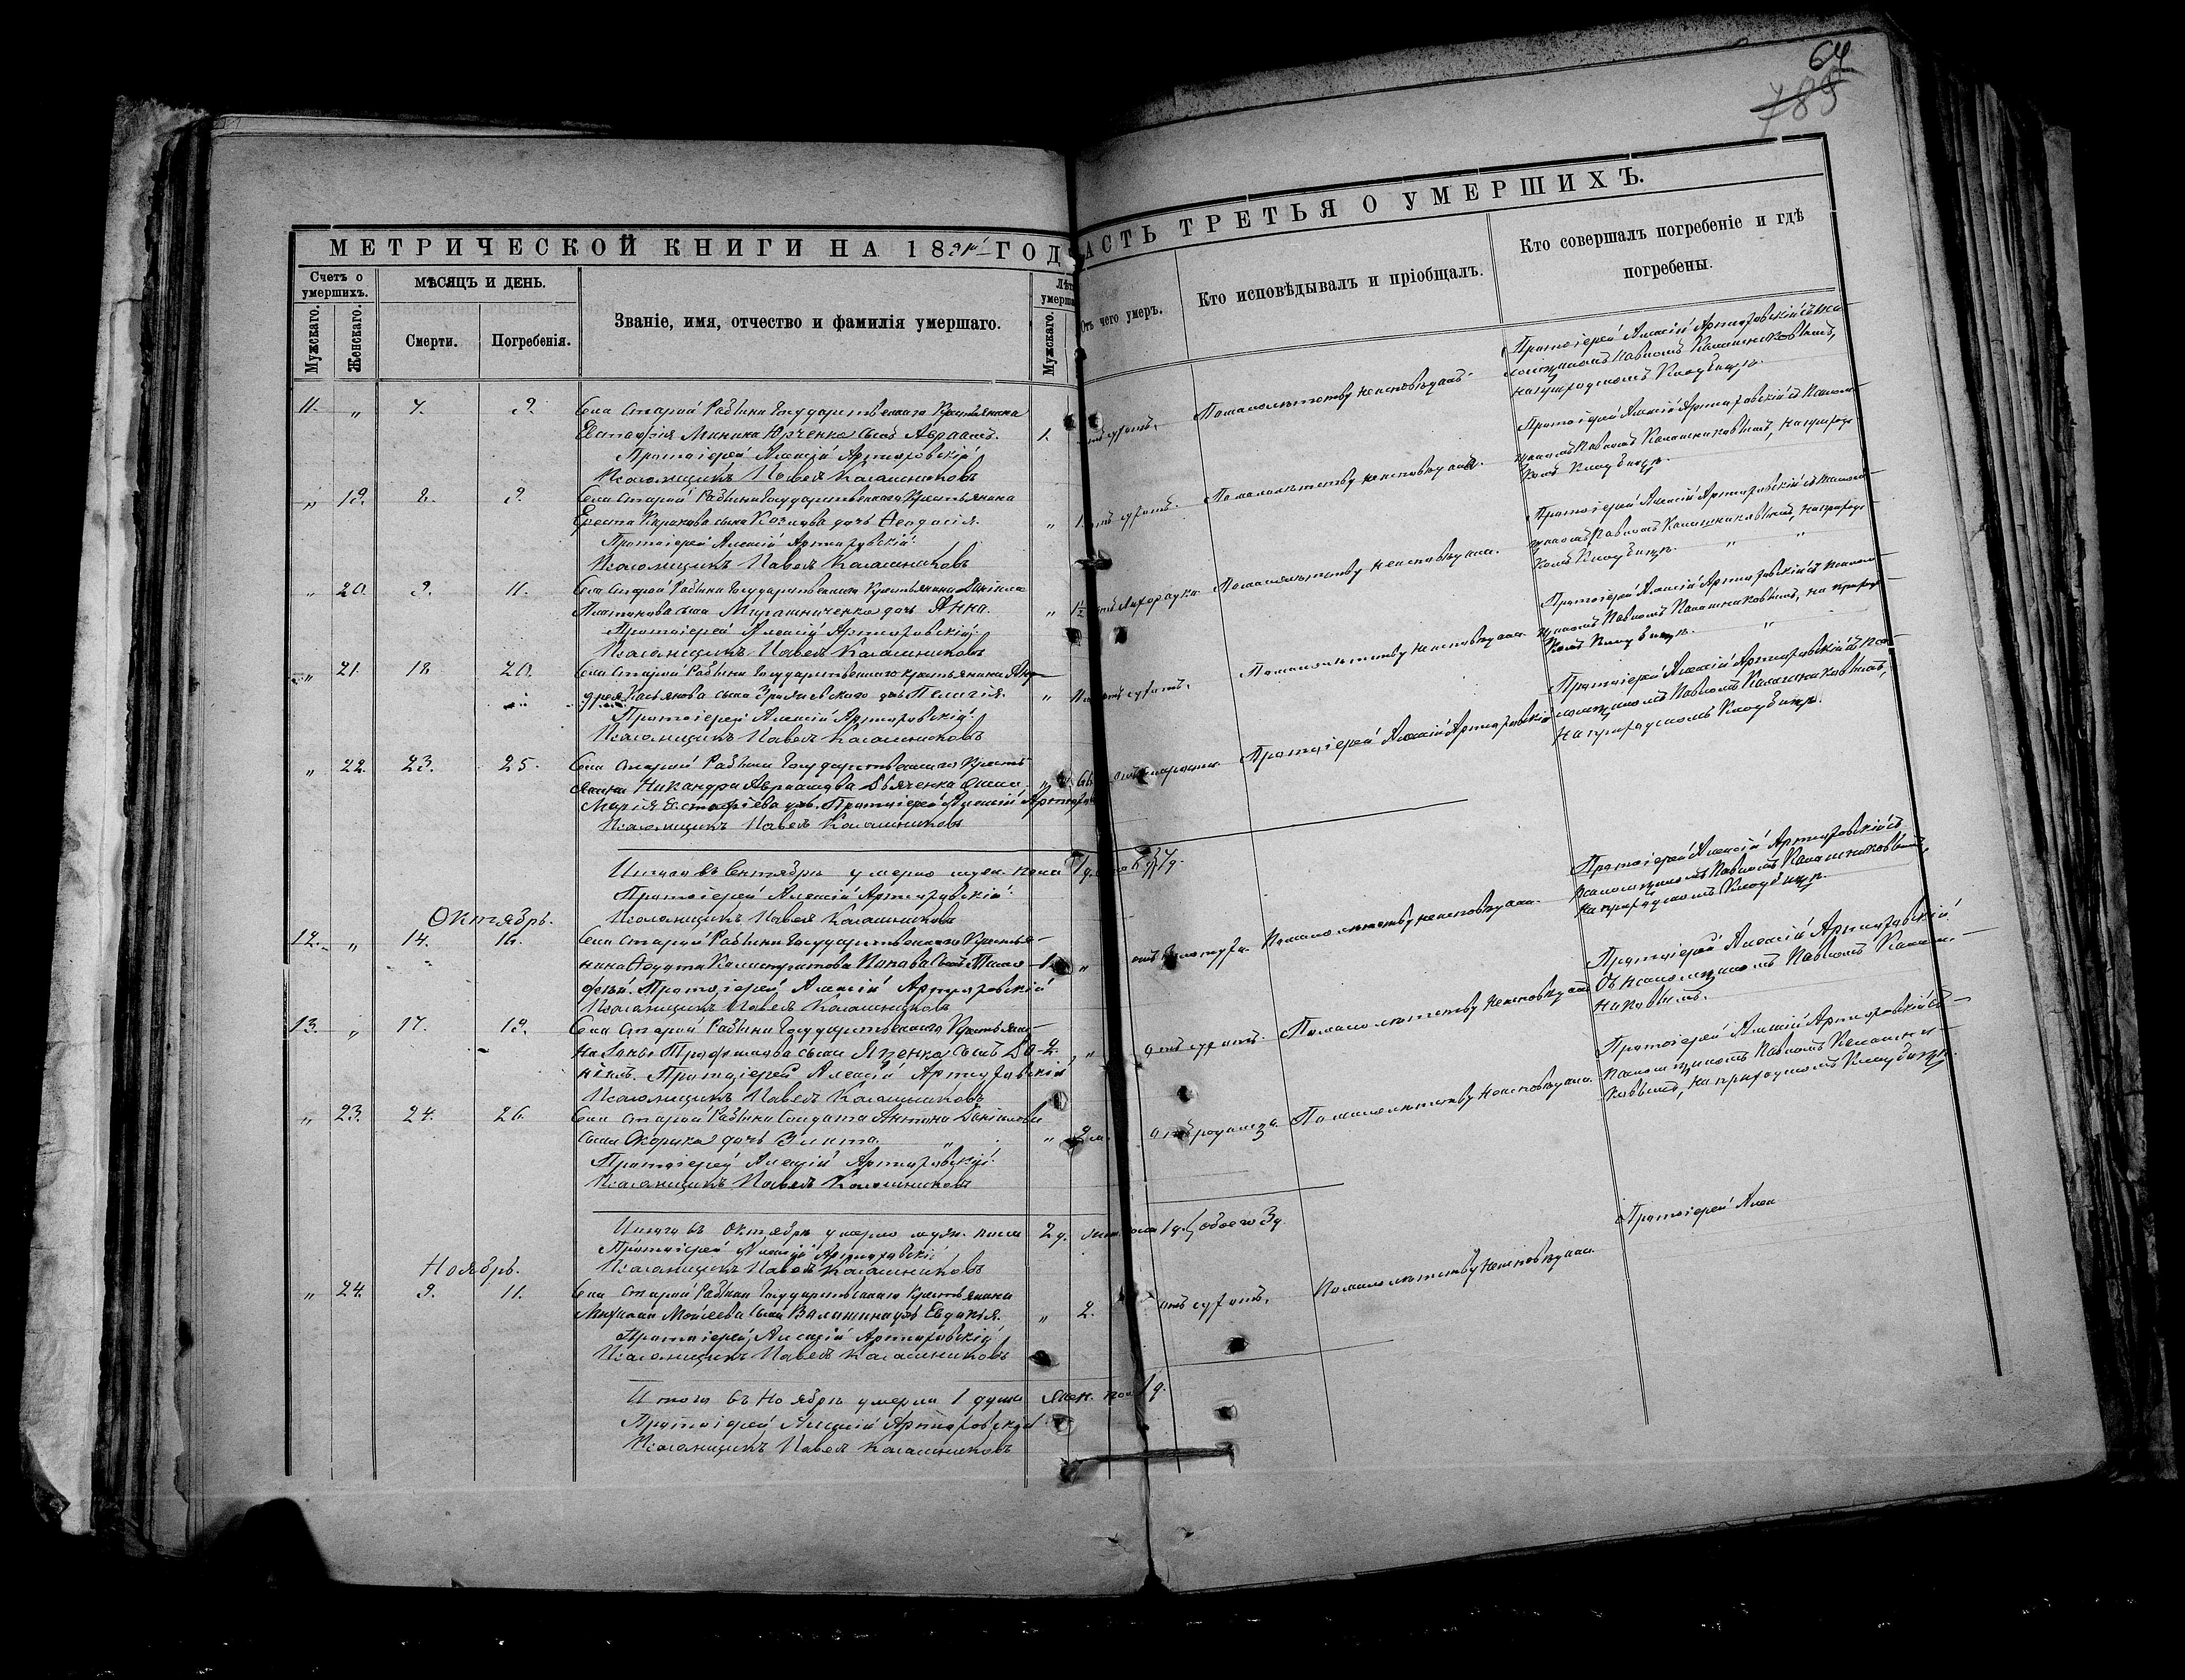 64
785
МЕТРИЧЕСКОЙ КНИГИ НА 18 ГОД
Счетъ о умершихъ.
Мужскаго.
Женскаго.
МѢСЯЦЪ И ДЕНЬ.
Смерти.
Погребенія.
Званіе, имя, отчество и фамилія умершаго.
Лѣт
умерша
Мужскаго.
11. „ 7. 9. Села Старой Рябины Государственнаго Крестьянина
Евстафія Минина Юрченко сынъ Авраамъ. 1.
Протоіерей Алексій Артюховскій
Псаломщикъ Павелъ Калашниковъ
„ 19. 8. 9. Села Старой Рябины Государственнаго Крестьянина
сына Козлова дочь Ѳеодосія. „ 1.
Протоіерей Алексій Артюховскій
Псаломщикъ Павелъ Калашниковъ
„ 20. 9. 11. Села Старой Рябины Государственнаго Крестьянина Даніила
Платонова сына Мирошниченко дочь Анна. „ 1½
Протоіерей Алексій Артюховскій
Псаломщикъ Павелъ Калашниковъ
„ 21. 18. 20. Села Старой Рябины Государственнаго крестьянина Ан-
дрея Касьянова сына дочь Пелагія. „
Протоіерей Алексій Артюховскій
Псаломщикъ Павелъ Калашниковъ
„ 22. 23. 25. Села Старой Рябины Государственнаго Кресть-
янина Никандра Авраамова Дьяченка
Марія Евстафіева Протоіерей Алексій Артюхов
Псаломщикъ Павелъ Калашниковъ
Итого въ Сентябрѣ умерло муж. пола 1
Протоіерей Алексій Артюховскій
Псаломщикъ Павелъ Калашниковъ
Октябрь.
12. „ 14. 16. Села Старой Рябины Государственнаго Крестья-
нина Ѳедота Калистратова Попова сынъ Тимо- 1
фей. Протоіерей Алексій Артюховскій
Псаломщикъ Павелъ Калашниковъ
13. „ 17. 19. Села Старой Рябины Государственнаго Крестьяни-
на Трофимова сына Яценко сынъ Да- 2.
ніилъ. Протоіерей Алексій Артюховскій
Псаломщикъ Павелъ Калашниковъ
„ 23. 24. 26. Села Старой Рябины Солдата Антона Даніилова
сына дочь „ 2 м.
Протоіерей Алексій Артюховскій
Псаломщикъ Павелъ Калашниковъ
Итого въ Октябрѣ умерло муж. пола 2 д. жен. пола 1 д. обоего 3 д.
Протоіерей Алексій Артюховскій
Псаломщикъ Павелъ Калашниковъ
Ноябрь.
„ 24. 9. 11. Села Старой Рябины Государственнаго Крестьянина
Михаила Моисеева сына дочь Евдокія. „ 2.
Протоіерей Алексій Артюховскій
Псаломщикъ Павелъ Калашниковъ
Итого въ Ноябрѣ умерла 1 душа жен. пол. 1 д.
Протоіерей Алексій Артюховскій
Псаломщикъ Павелъ Калашниковъ
АСТЬ ТРЕТЬЯ О УМЕРШИХЪ.
Отъ чего умеръ.
Кто исповѣдывалъ и пріобщалъ.
Кто совершалъ погребеніе и гдѣ погребены.
По малолѣтству неисповѣданъ.
Протоіерей Алексій Артюховскій съ Пса-
ломщикомъ Павломъ Калашниковымъ,
на приходскомъ Кладбищѣ.
По малолѣтству неисповѣдана.
Протоіерей Алексій Артюховскій съ Псалом-
щикомъ Павломъ Калашниковымъ, на приход-
комъ Кладбищѣ.
По малолѣтству неисповѣдана.
Протоіерей Алексій Артюховскій съ Псалом-
щикомъ Павломъ Калашниковымъ, на приход-
комъ Кладбищѣ. „ „
По малолѣтству неисповѣдана.
Протоіерей Алексій Артюховскій съ Псалом-
щикомъ Павломъ Калашниковымъ, на приход-
комъ Кладбищѣ. „
Протоіерей Алексій Артюховскій
Протоіерей Алексій Артюховскій съ Пса-
ломщикомъ Павломъ Калашниковымъ,
на приходскомъ Кладбищѣ.
По малолѣтству неисповѣдана.
Протоіерей Алексій Артюховскій съ
Псаломщикомъ Павломъ Калашниковымъ,
на приходскомъ Кладбищѣ.
По малолѣтству неисповѣданъ
Протоіерей Алексій Артюховскій
съ Псаломщикомъ Павломъ Калаш-
никовымъ.
По малолѣтству неисповѣдана.
Протоіерей Алексій Артюховскій съ
Псаломщикомъ Павломъ Калашни-
ковымъ, на приходскомъ Кладбищѣ.
По малолѣтству неисповѣдана.
Протоіерей Алек